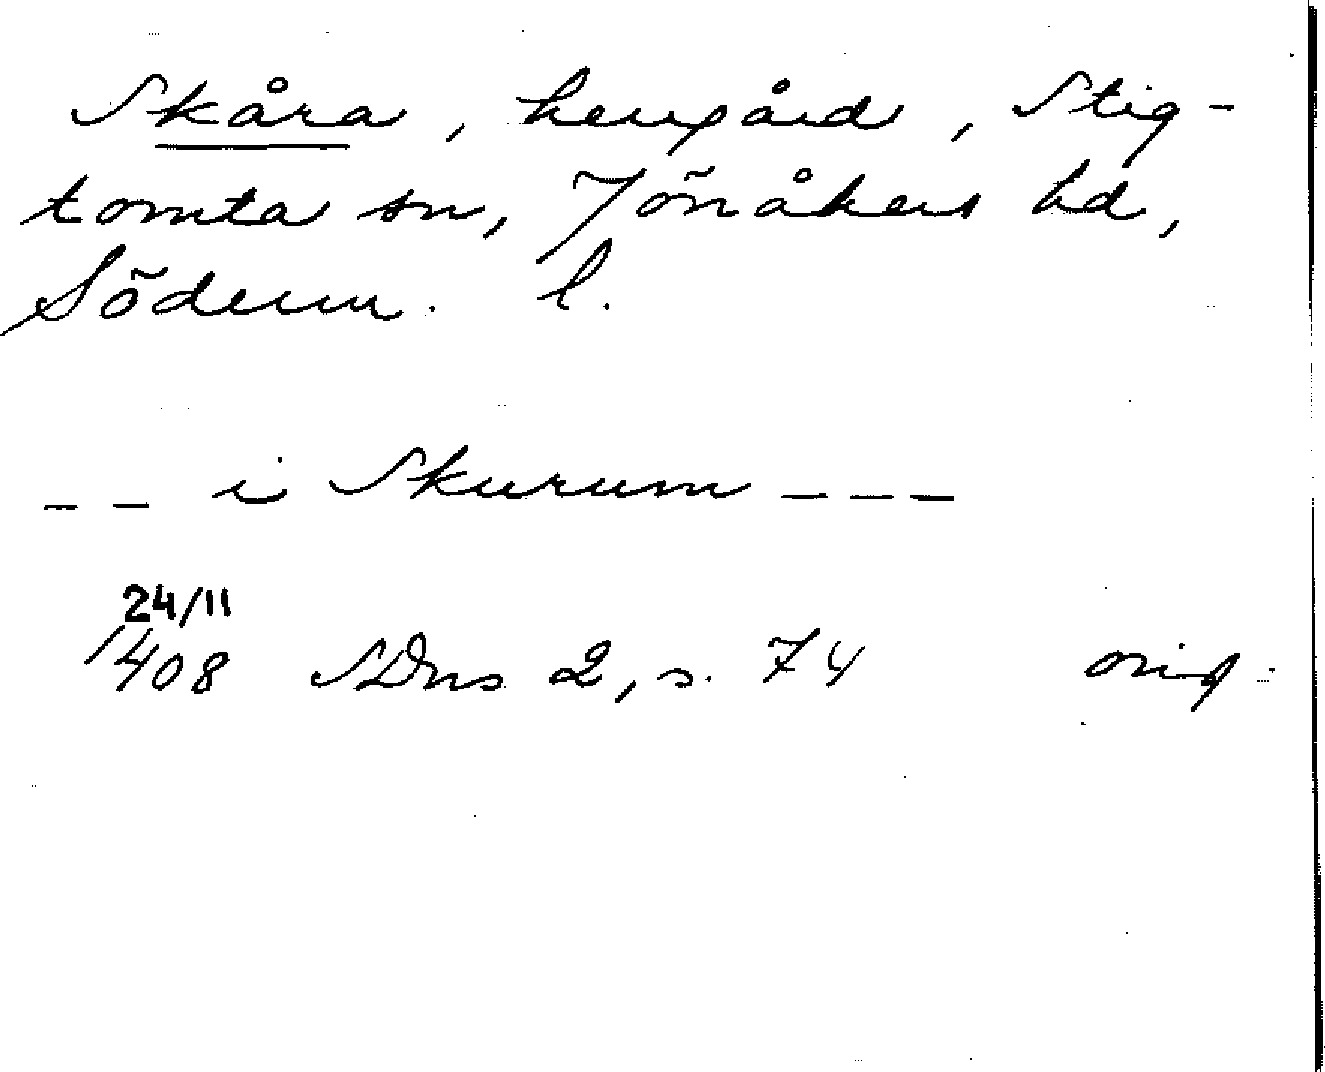 Skåra, herrgård, Stig-
tomta sn, Jönåkers hd,
Söderm. l.
-- i Skurum ---
24/11
1408 SDns 2, s. 74 orig.